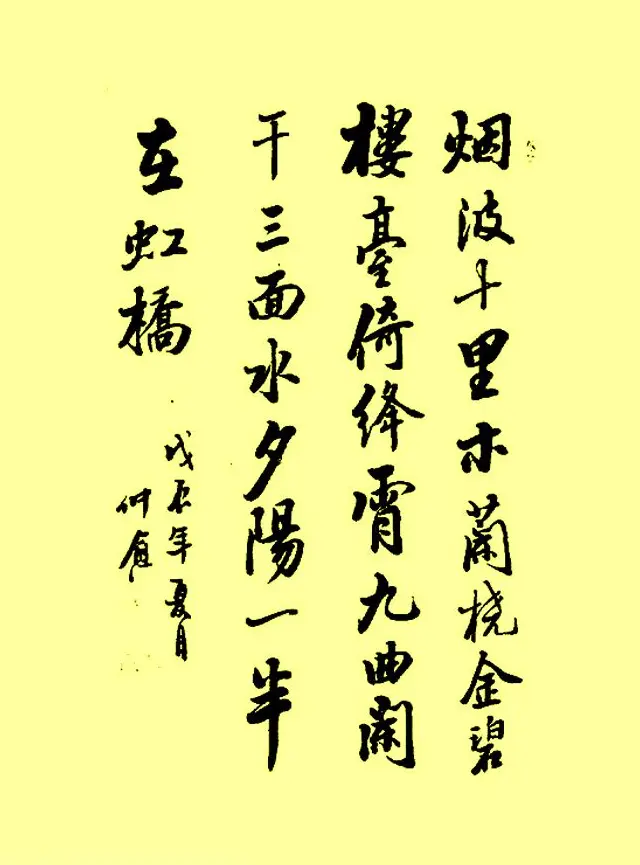 烟波千里木蘭桡金碧
樓臺倚絳霄九曲闌
干三面水夕陽一半
在虹橋
戊辰年夏月
仲